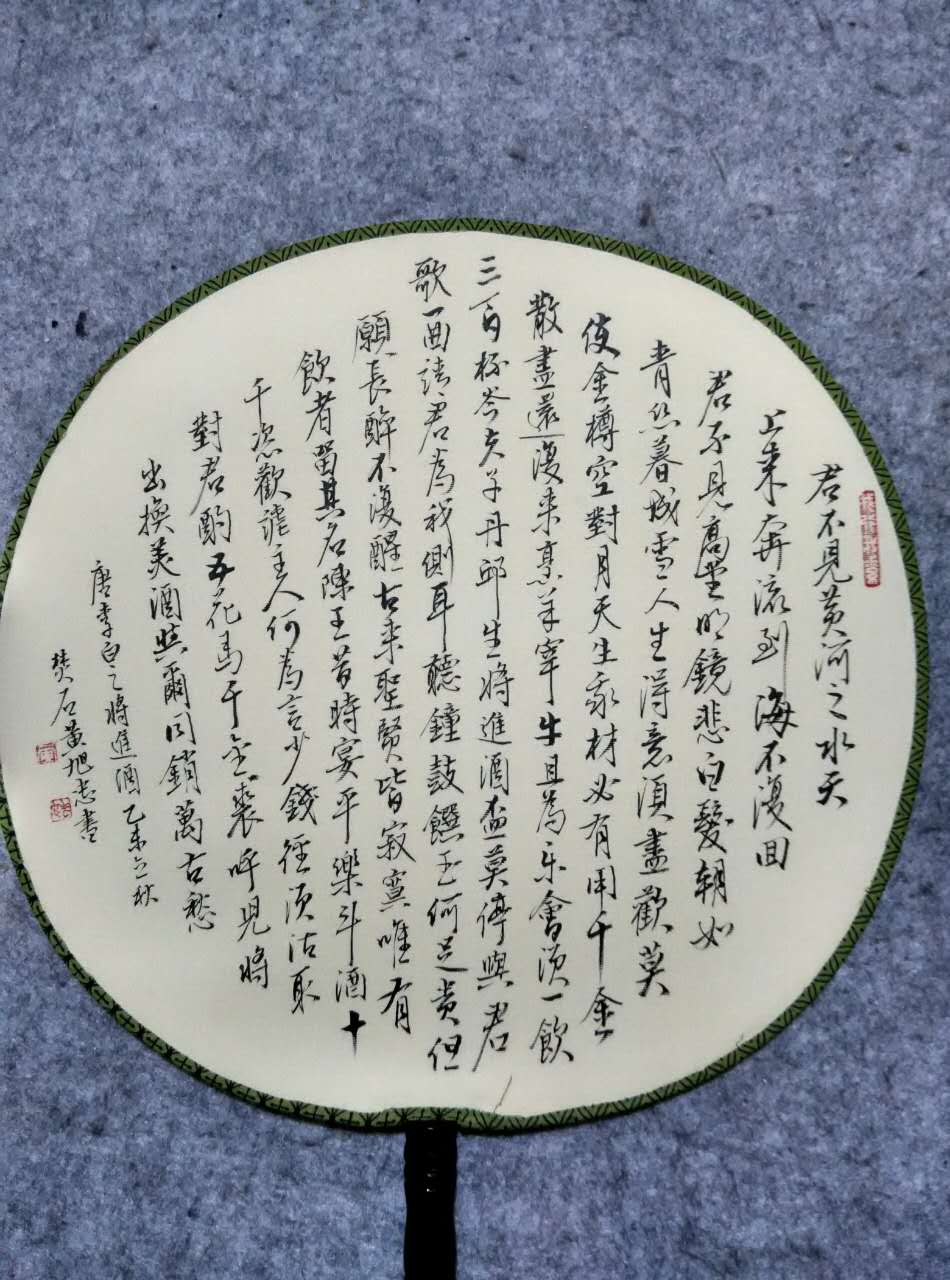 君不見黃河之水天
上来奔流到海不復回
君不見高堂明鏡悲白髮朝如
青絲暮成雪人生得意須盡歡莫
使金樽空對月天生我材必有用千金
散盡還復来烹羊宰牛且為乐會須一飲
三百杯岑夫子丹邱生將進酒盃莫停與君
歌一曲請君為我側耳聽鐘鼓饌玉何足贵但
願長醉不復醒古来聖賢皆寂寞唯有
飲者留其名陳王昔時宴平樂斗酒十
千恣歡謔主人何為言少錢徑須沽取
對君酌五花馬千金裘呼兒將
出換美酒與爾同銷萬古愁
唐李白之將進酒乙未之秋
石黃旭志書